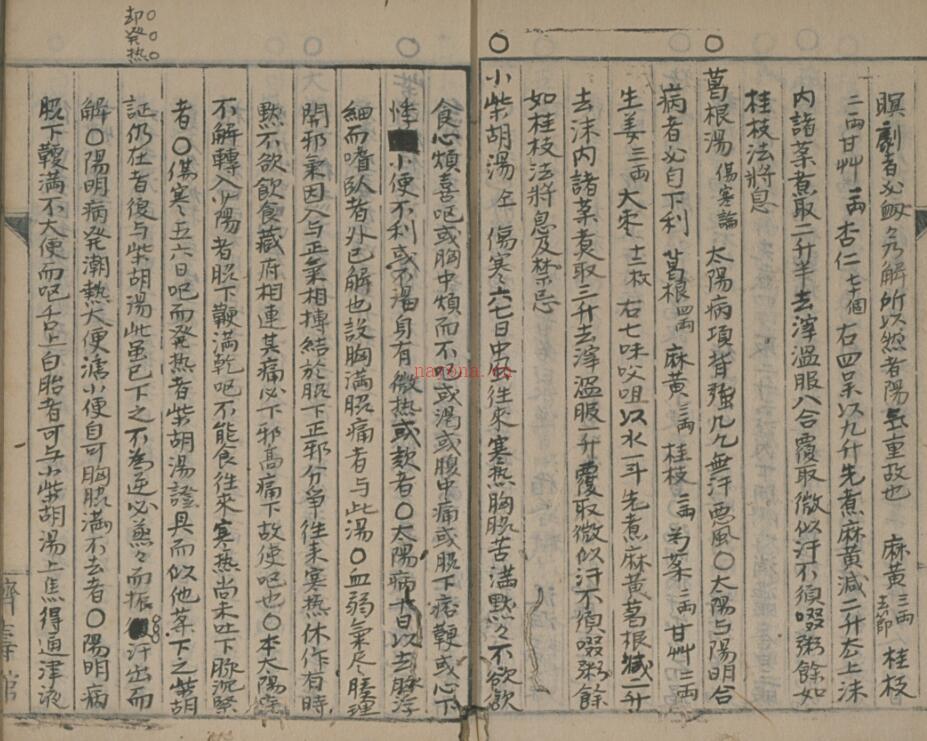 瞑劇者必衂衂乃解所以然者陽气重故也 麻黃三両去節 桂枝
二両甘艸一両 杏仁七十個 右四味以水九升先煮麻黃減二升去上沫
内諸薬煮取二升半去滓温服八合覆取微似汗不須啜粥餘如
桂枝法將息
葛根湯 傷寒論 太陽病項背強几几無汗悪風〇太陽与陽明合
病者必自下利 葛根四両 麻黃三両 桂枝二両 芍薬二両 甘艸二両
生姜三両 大枣十二枚 右七味㕮咀以水一斗先煮麻黃葛根減二升
去沫内諸薬煮取三升去滓温服一升覆取微似汗不須啜粥餘
如桂枝法將息及禁忌
小柴胡湯 仝 傷寒六七日中風往來寒热胸脇苦満黙々不欲飲
食心煩喜呕或胸中煩而不呕或渇或腹中痛或脇下痞鞕或心下
悸小便不利或不渇身有微热或欬者〇太陽病十日以去脉浮
細而嗜臥者外已解也設胸満脇痛者与此湯〇血弱氣尽腠理
開邪氣因入与正氣相搏結於脇下正邪分爭往来寒热休作有時
黙々不欲飲食蔵府相連其痛必下邪髙痛下故使呕也〇本太陽病
不解轉入少陽者脇下鞕満乾呕不能食往來寒热尚未吐下脉沉緊
者〇傷寒五六日呕而発热者柴胡湯證具而似他薬下之柴胡
証仍在者復与柴胡湯此虽已下之不為逆必蒸々而振〇〇〇汗出而
却発热
解〇陽明病発潮热大便溏小便自可胸脇満不去者〇陽明病
脇下鞕満不大便而呕舌上白胎者可与小柴胡湯上焦得通津液